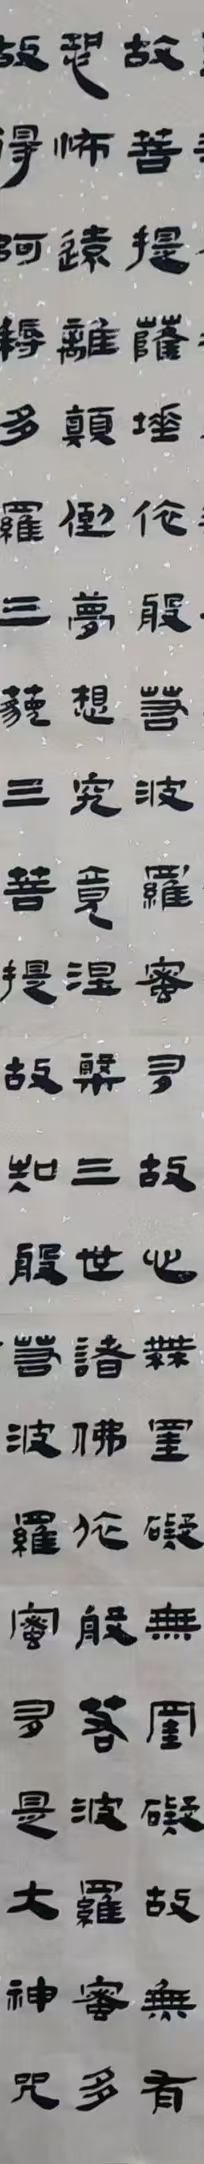 故菩提薩埵依般若波羅蜜多故心無罣礙無罣礙故無有
恐怖遠離顛倒夢想究竟涅槃三世諸佛依般若波羅蜜多
故得阿耨多羅三藐三菩提故知般若波羅蜜多是大神咒